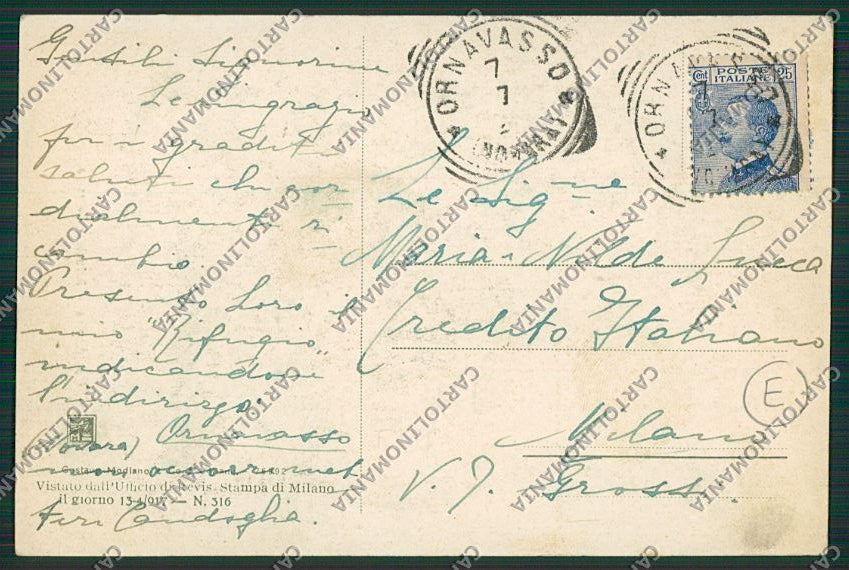 Gentili Signorine
Le ringrazio
per i graditi
saluti che cor-
dialmente ri-
cambio
Presento Loro il
mio "Rifugio"
indicandone
l'indirizzo:
(Novara) Ornavasso
Gustavo Modiano & Co.
Vistato dall'Ufficio di Revis. Stampa di Milano
il giorno 13-4-917 — N. 316
per Candoglia.
ORNAVASSO
7
7
(NOVARA)
ORNAVASSO
7
7
(NOVARA)
Cent 25
POSTE
ITALIANE
Le Sig.ne
Maria e Nilde
Credito Italiano
E
Milano
V. T. Grossi
CARTOLINOMANIA